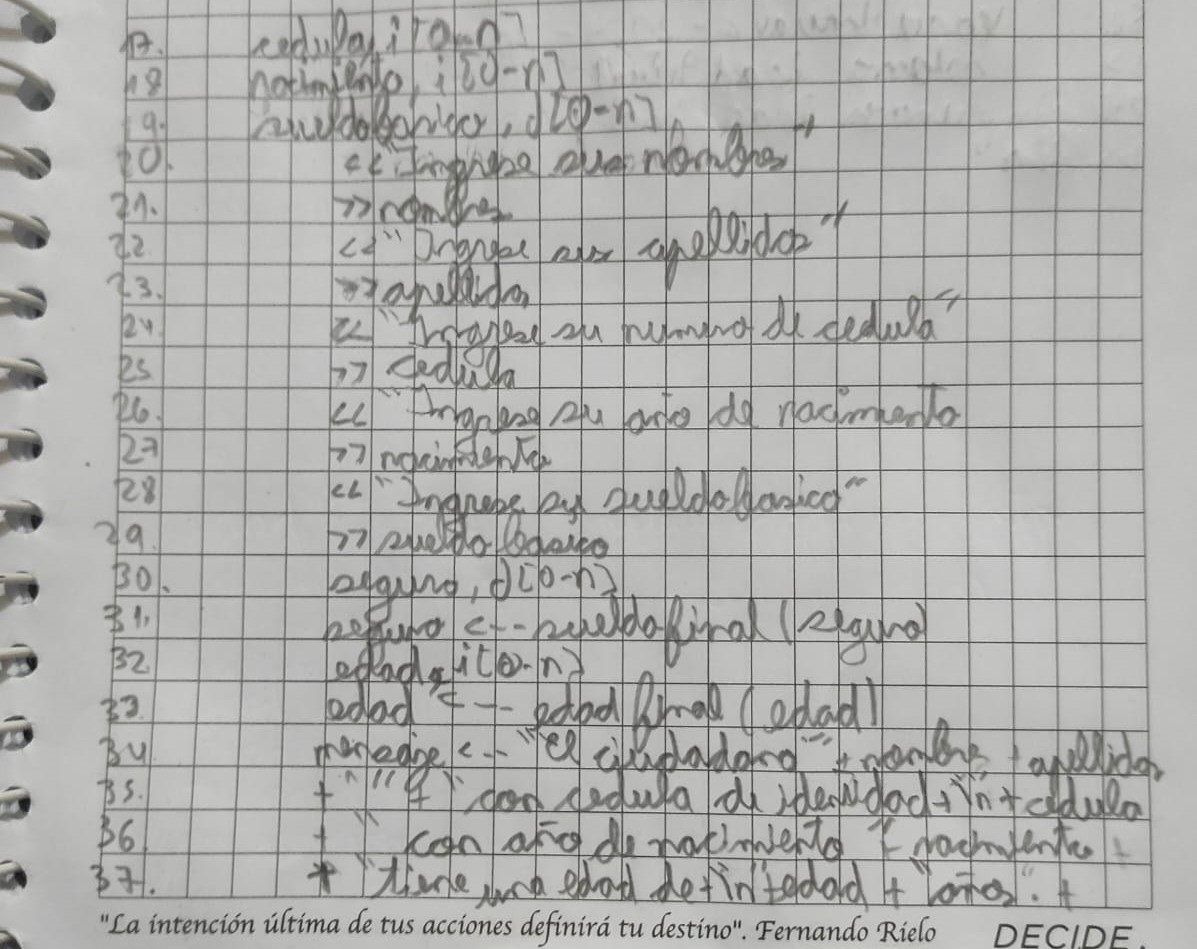 17. cedula, i [0-n]
18 nacimiento, i [0-n]
19. sueldobasico, d[0-n]
20. <<"Ingrese sus nombres"
21. >>nombres
22 <<"Ingrese sus apellidos"
23. >>apellidos
24 << "Ingrese su numero de cedula"
25 >> cedula
26. << "Ingrese su año de nacimiento
27 >> nacimiento
28 << "Ingrese su sueldobasico"
29. >> sueldo basico
30. seguro, d[0-n]
31. seguro <-- sueldofinal (seguro)
32 edad, i[0-n]
33. edad <-- edad final (edad)
34 mensaje <-- "El ciudadano" + nombres + apellidos
35. + " " + " con cedula de identidad + \n + cedula
36 + " con año de nacimiento + nacimiento +
37. + "tiene una edad de + \n + edad + "años". +
"La intención última de tus acciones definirá tu destino". Fernando Rielo DECIDE.